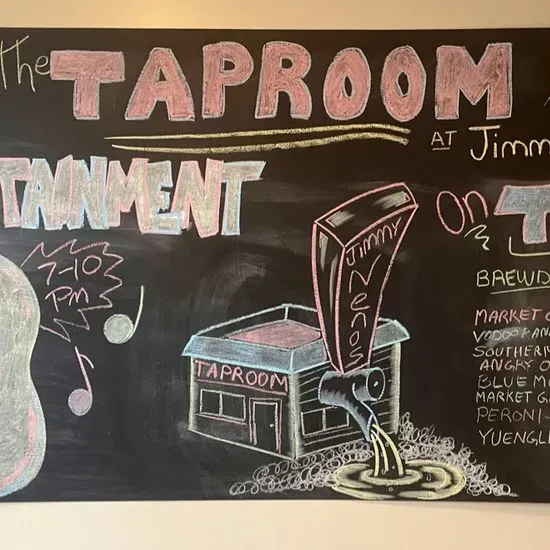 The TAPROOM
AT Jimm
TAINMENT
7-10
PM
Jimmy
Nenos
TAPROOM
On T
BREWD
MARKET
VOODOO
SOUTHERN
ANGRY O
BLUE M
MARKET G
PERONI-
YUENGL